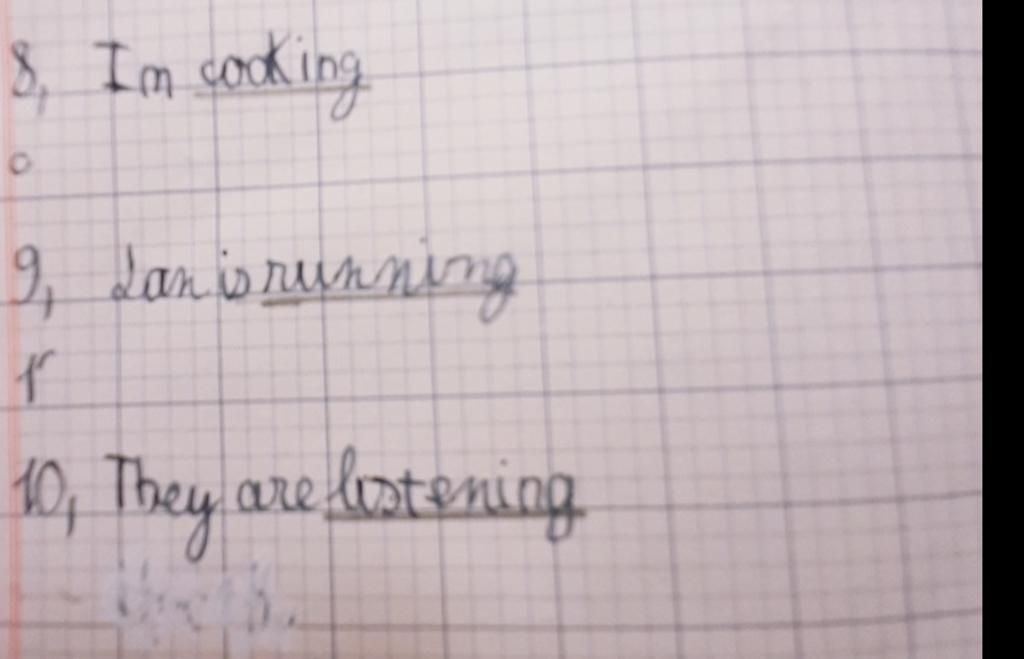 8, Im cooking
9, Lan is running
r
10, They are listening